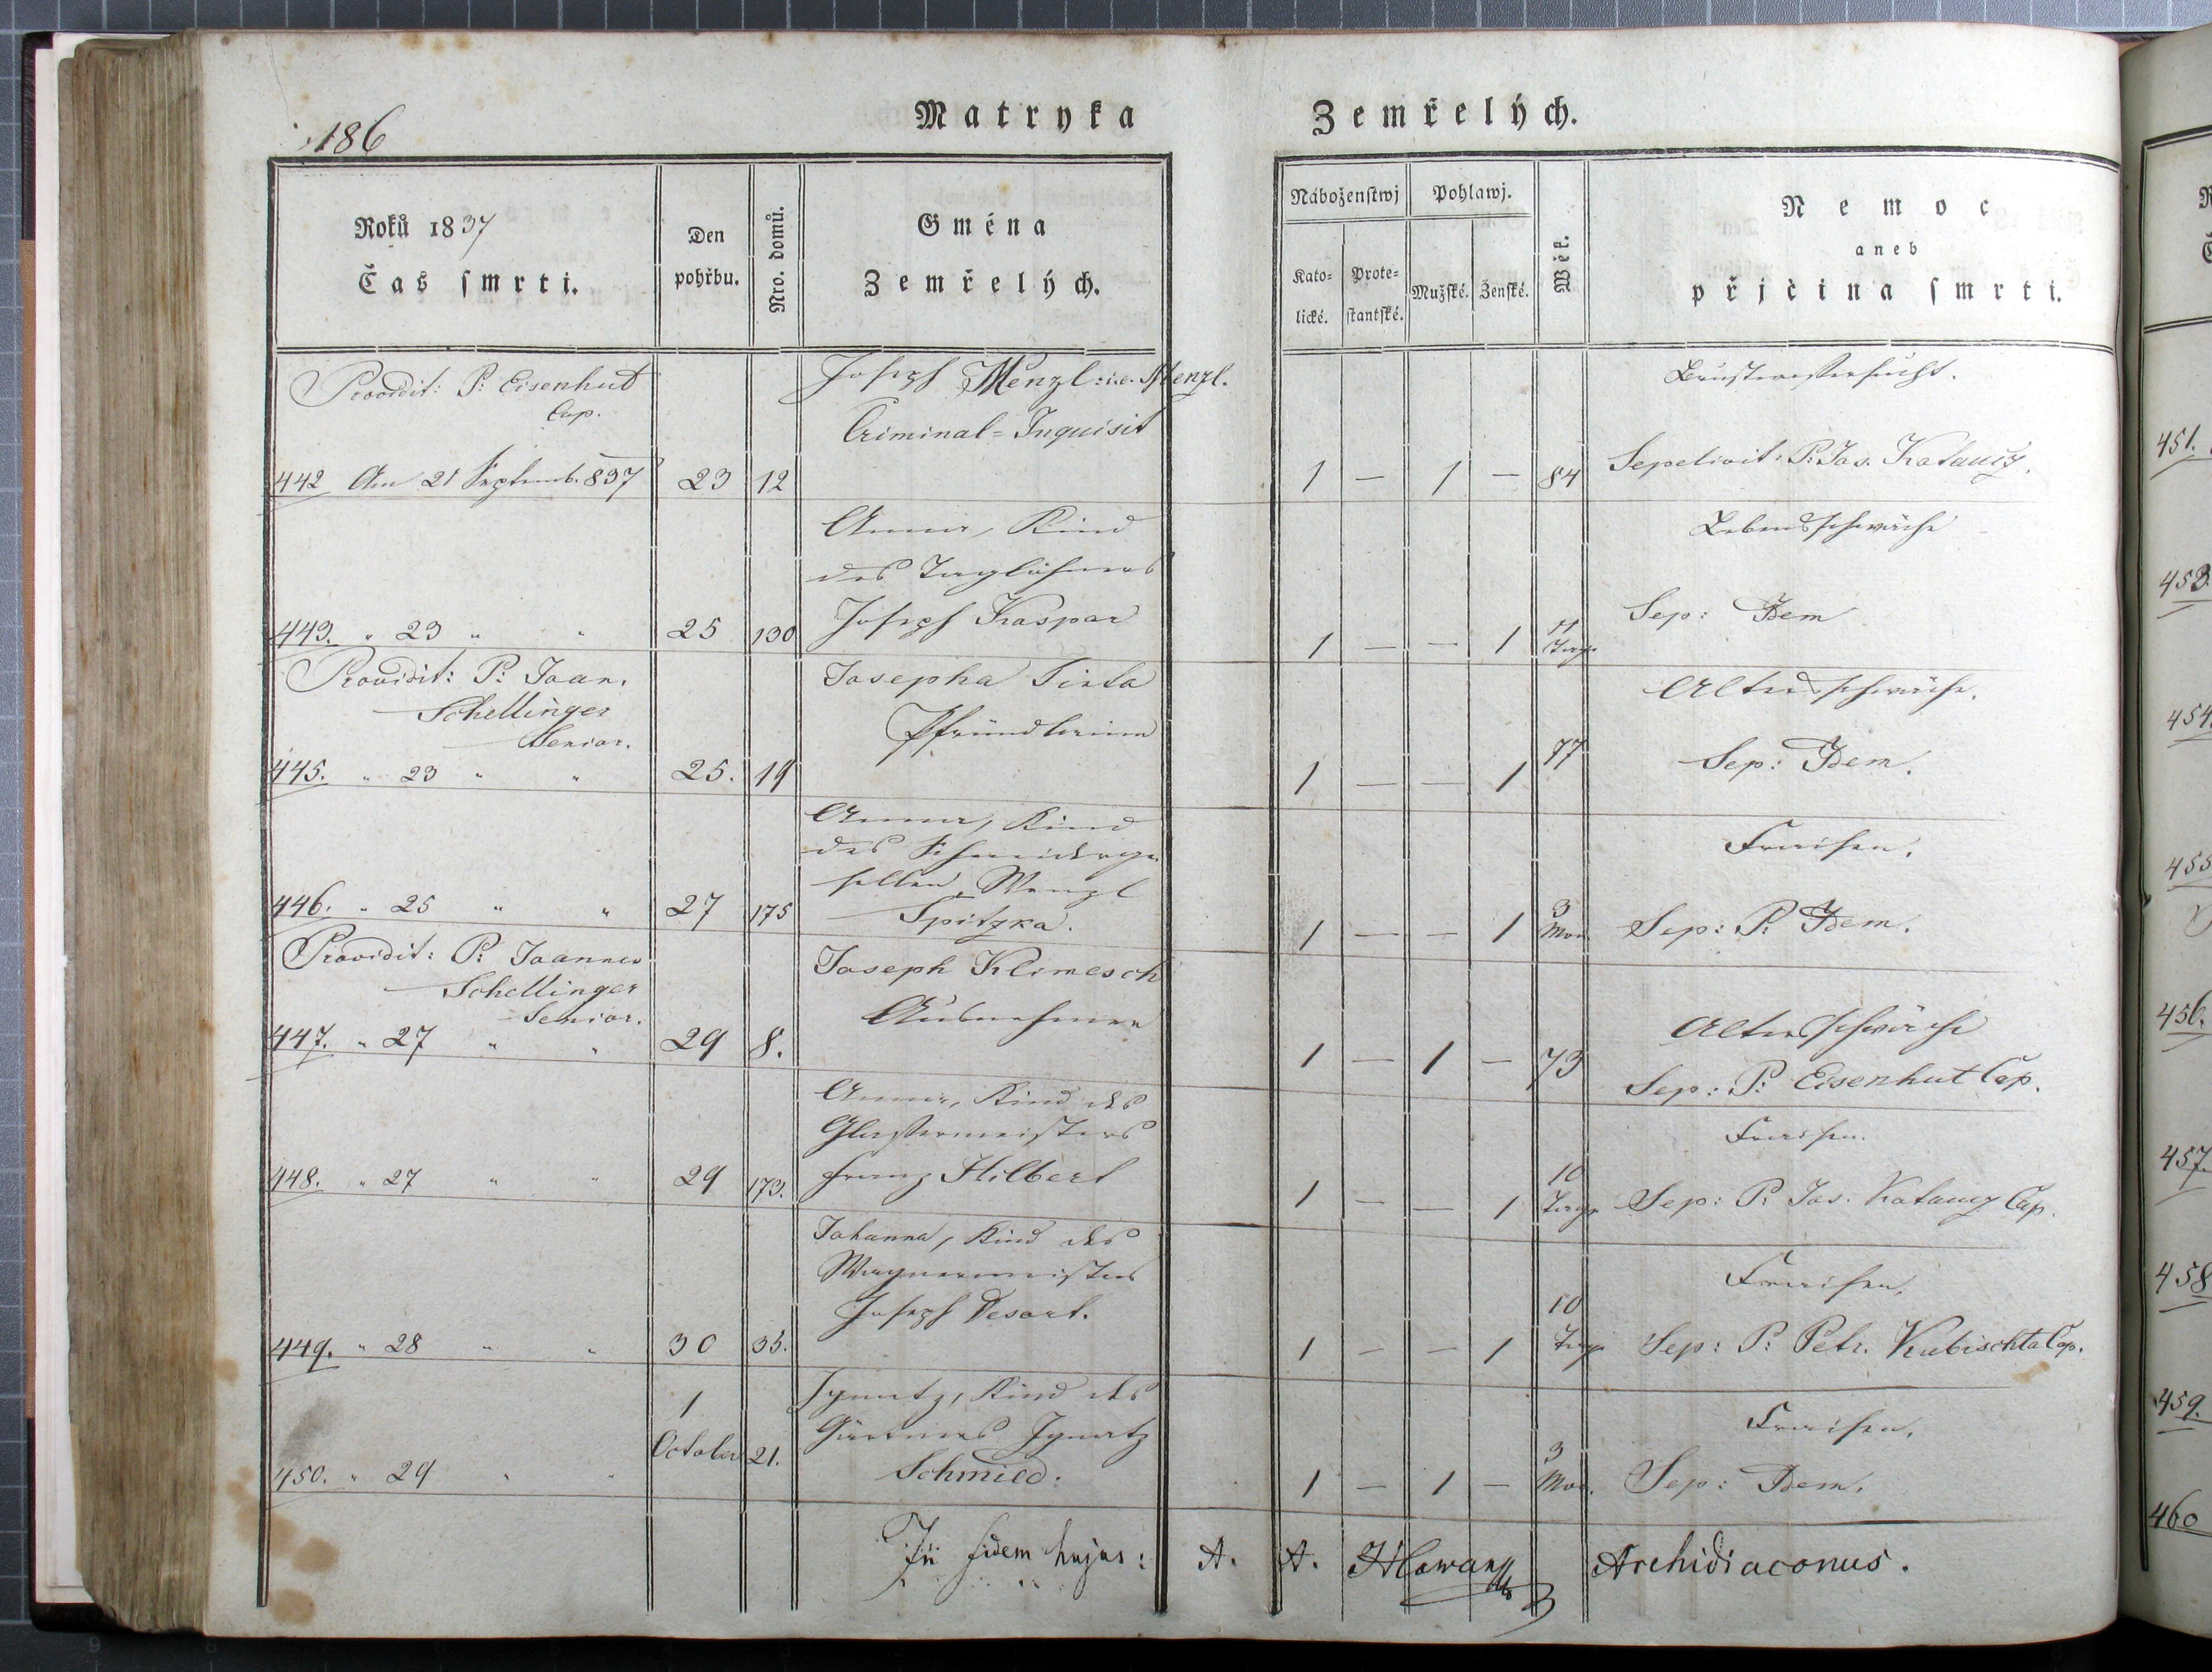 186
Matryka Zemřelých.
Roků 1837
Čas smrti.
Den pohřbu.
Nro. domů.
Gména Zemřelých.
Náboženstwj
Pohlawj.
Katolické.
Protestantské.
Mužské.
Ženské.
Wěk.
Nemoc
aneb
přjčina smrti.
Providit: P: Eisenhut
Cap.
Joseph Menzl: i.e. Menzl.
Criminal=Inquisit
Brustwassersucht.
442 Am 21 Septemb. 837 23 12 1 — 1 — 84 Sepelivit: P. Jos.
Anna, Kind
des Taglöhners
Joseph Kaspar
Lebensschwäche
443. " 23 " " 25 130 1 — — 1 11 Tage Sep: Idem
Providit: P: Joan.
Schellinger
Senior.
Josepha
Pfründlerinn
Altersschwäche.
445. " 23 " " 25. 19 1 — — 1 77 Sep: Idem.
Anna, Kind
des Schneiderge
sellen, Wenzl
Spitzka.
Fraisen.
446. " 25 " " 27 175 1 — — 1 3 Mon. Sep: P. Idem.
Providit: P: Joannes
Schellinger
Senior.
Joseph Klimesch
Ausnehmer
Altersschwäche
447. " 27 " " 29 8. 1 — 1 — 73 Sep: P: Eisenhut Cap.
Anna, Kind des
Glasermeisters
Franz Hilbert
Fraisen.
448. " 27 " " 29 173. 1 — — 1 10 Tage Sep: P. Jos. Cap.
Johanna, Kind des
Wagnermeisters
Joseph Desort.
Fraisen.
449. " 28 " " 30 35. 1 — — 1 10 Tage Sep: P: Petr. Kubischta Cap.
Ignatz, Kind des
Gärtners Ignatz
Schmied.
Fraisen.
450. " 29 " " 1 October 21. 1 — 1 — 3 Mon. Sep: Idem.
In fidem hujus: A. A. Archidiaconus.
451.
453.
454.
455
456.
457.
458
459.
460